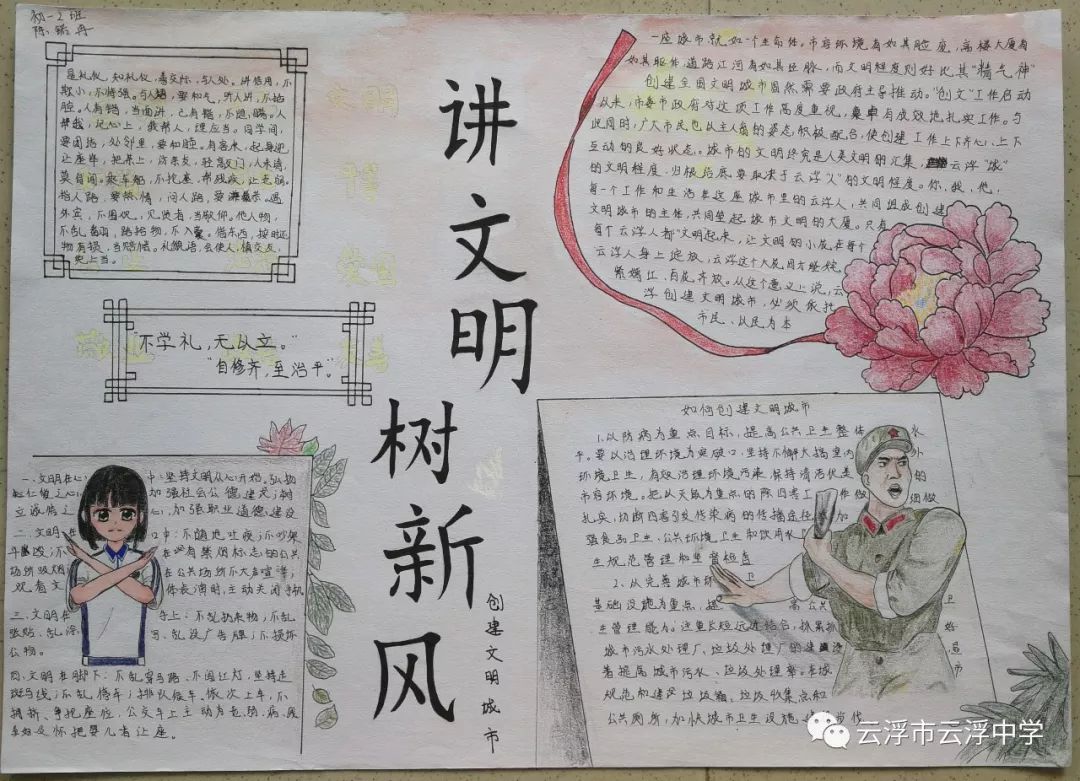 初一2班
讲文明
树新风
创建文明城市
是礼仪，知礼仪，看交际，与人处。讲信用，不
欺小，不恃强。与人错，要和气，与人讲，不
腔。人有错，当面讲，己有错，不遮瞒。人
帮我，记心上，我帮人，理应当。同学间，
要团结，处邻里，要和睦。有客来，起身迎
让座毕，把茶上，访亲友，轻敲门，人未请，
莫自闯。乘车船，不抢塞，帮残疾，让老弱。
指人路，要热情，问人路，要
外宾，不围观，见贤者，当敬仰。他人物，
不乱翻，路拾物，不入囊。借东西，按时还
物有损，当赔偿。礼貌语，会使人，情交友，
更上当。
“不学礼，无以立。”
“自修齐，至治平。”
文明
爱国
敬业
一座城市就如一个生命体。市容环境有如其脸庞，高楼大厦有
如其躯体，道路江河有如其血脉，而文明程度则好比其“精气神”
创建全国文明城市固然需要政府主导推动。“创文”工作启动
以来，市委市政府对这项工作高度重视，卓有成效地扎实工作。与
此同时，广大市民也以主人翁的姿态，积极配合，使创建工作上下齐心、上下
互动的良好状态。城市的文明终究是人类文明的汇集，云浮“城”
的文明程度，归根结底要取决于云浮“人”的文明程度。你、我、他，
每一个工作和生活在这座城市里的云浮人，共同组成创建
文明城市的主体，共同垒起城市文明的大厦。只有
每个云浮人都“文明起来，让文明的小花在每个
云浮人身上绽放，云浮这个大花园方能姹
紫嫣红、百花齐放。从这个意义上说，云
浮创建文明城市，必须依托
市民、以民为本
一、文明在心中：坚持文明从心开始，弘扬
加强社会公德建设；树
立诚信，加强职业道德建设
二、文明在口中：不随地吐痰；不吵架
斗殴；不在有禁烟标志的公共
场所吸烟；在公共场所不大声喧哗；
观看文体表演时，主动关闭手机
三、文明在手上：不乱扔杂物；不乱
张贴、乱涂写、乱设广告牌；不损坏
公物。
四、文明在脚下：不乱穿马路，不闯红灯，坚持走
斑马线；不乱停车；排队候车，依次上车，不
拥挤、争抢座位，公交车上主动为老、弱、病、残
孕妇及怀抱婴儿者让座。
如何创建文明城市
1、以防病为重点目标，提高公共卫生整体水
平。要以治理环境为突破口，坚持不懈大搞室内外
环境卫生，有效治理环境污染，保持清洁优美的
市容环境。把以灭鼠为重点的除四害工作做细做
扎实，切断四害引发传染病的传播途径，加
强食品卫生、公共环境卫生和饮用水卫
生规范管理和监督检查
2、从完善城市环卫
基础设施为重点，提高公共卫
生管理能力。注重长短远近结合，抓紧抓好
城市污水处理厂、垃圾处理厂的建设，显
著提高城市污水、垃圾处理率；在城市
规范和建设垃圾箱、垃圾收集点和
公共厕所，加快城市卫生设施
云浮市云浮中学